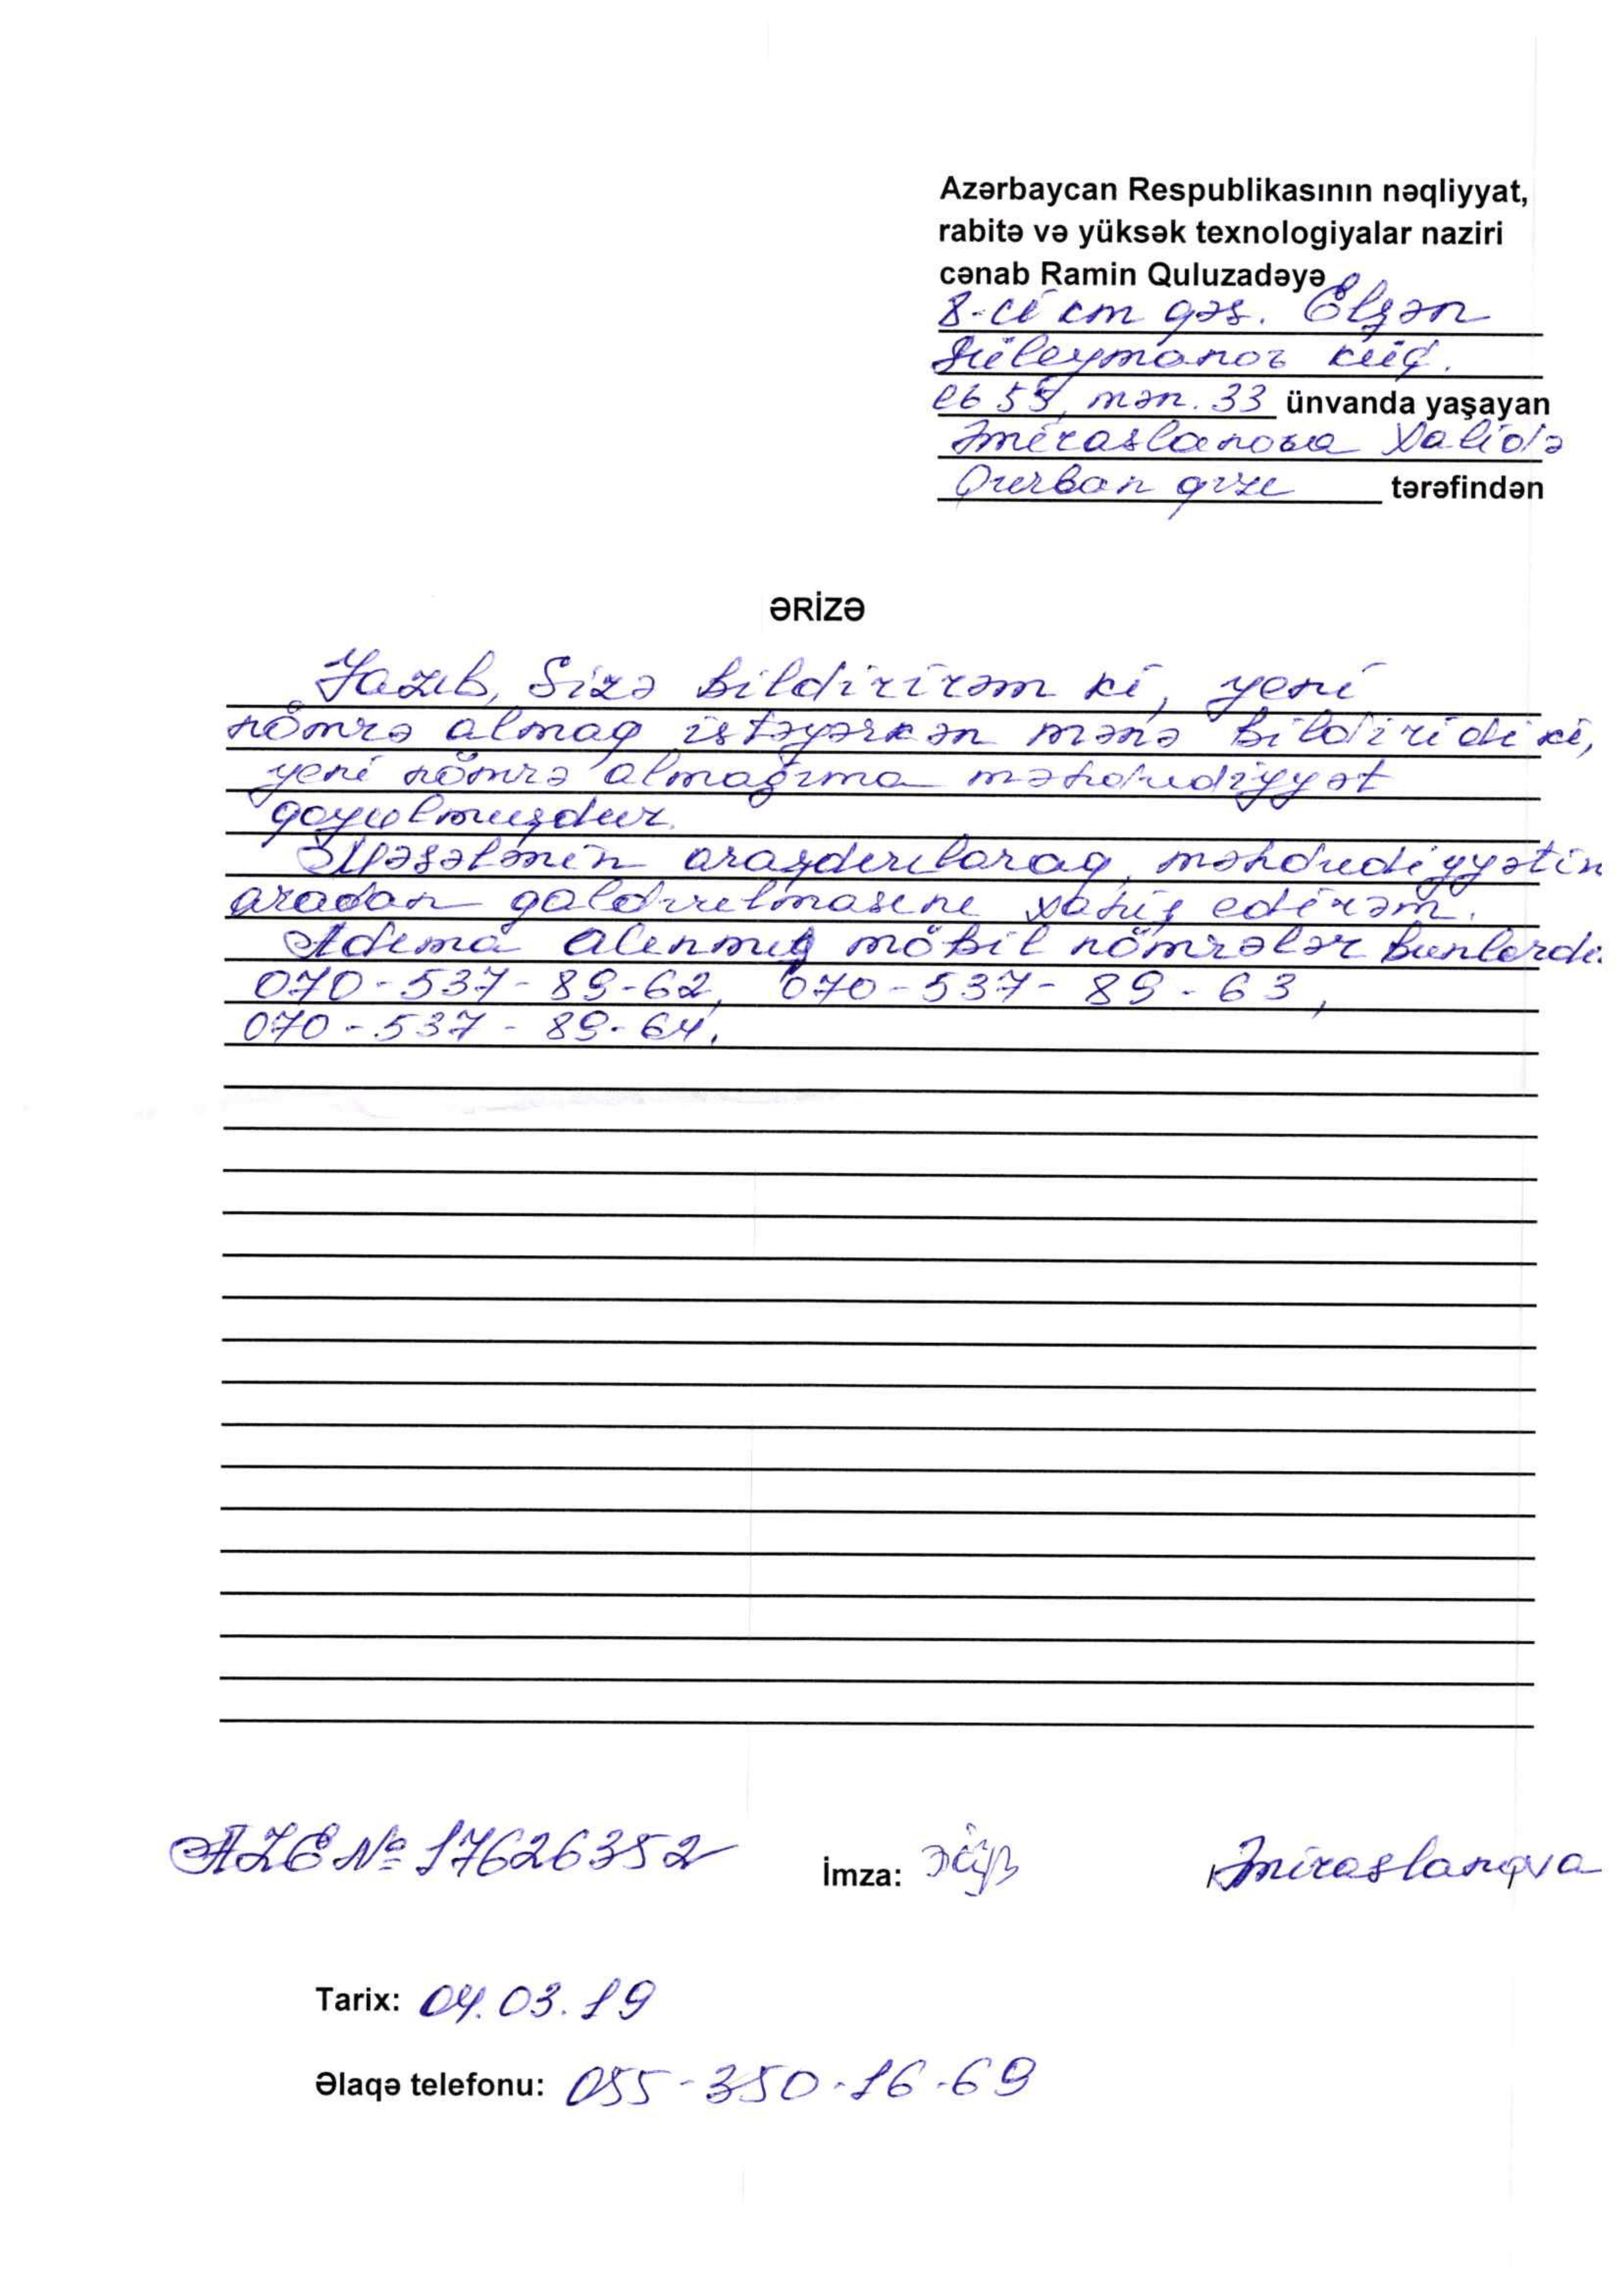 Azərbaycan Respublikasının nəqliyyat,
rabitə və yüksək texnologiyalar naziri
cənab Ramin Quluzadəyə
8-ci km qəs. Elşən
Süleymanov küç.
ev 55, mən. 33 ünvanda yaşayan
Əmiraslanova Xalidə
Qurban qızı tərəfindən
ƏRİZƏ
Yazıb, Sizə bildirirəm ki, yeni
nömrə almaq istəyərkən mənə bildirildi ki,
yeni nömrə almağıma məhdudiyyət
qoyulmuşdur.
Məsələnin araşdırılaraq, məhdudiyyətin
aradan qaldırılmasını xahiş edirəm.
Adıma alınmış mobil nömrələr bunlardı.
070-537-89-62, 070-537-89-63,
070-537-89-64.
AZE № 17626352
İmza:
Əmiraslanova
Tarix: 04.03.19
Əlaqə telefonu: 055-350-16-69